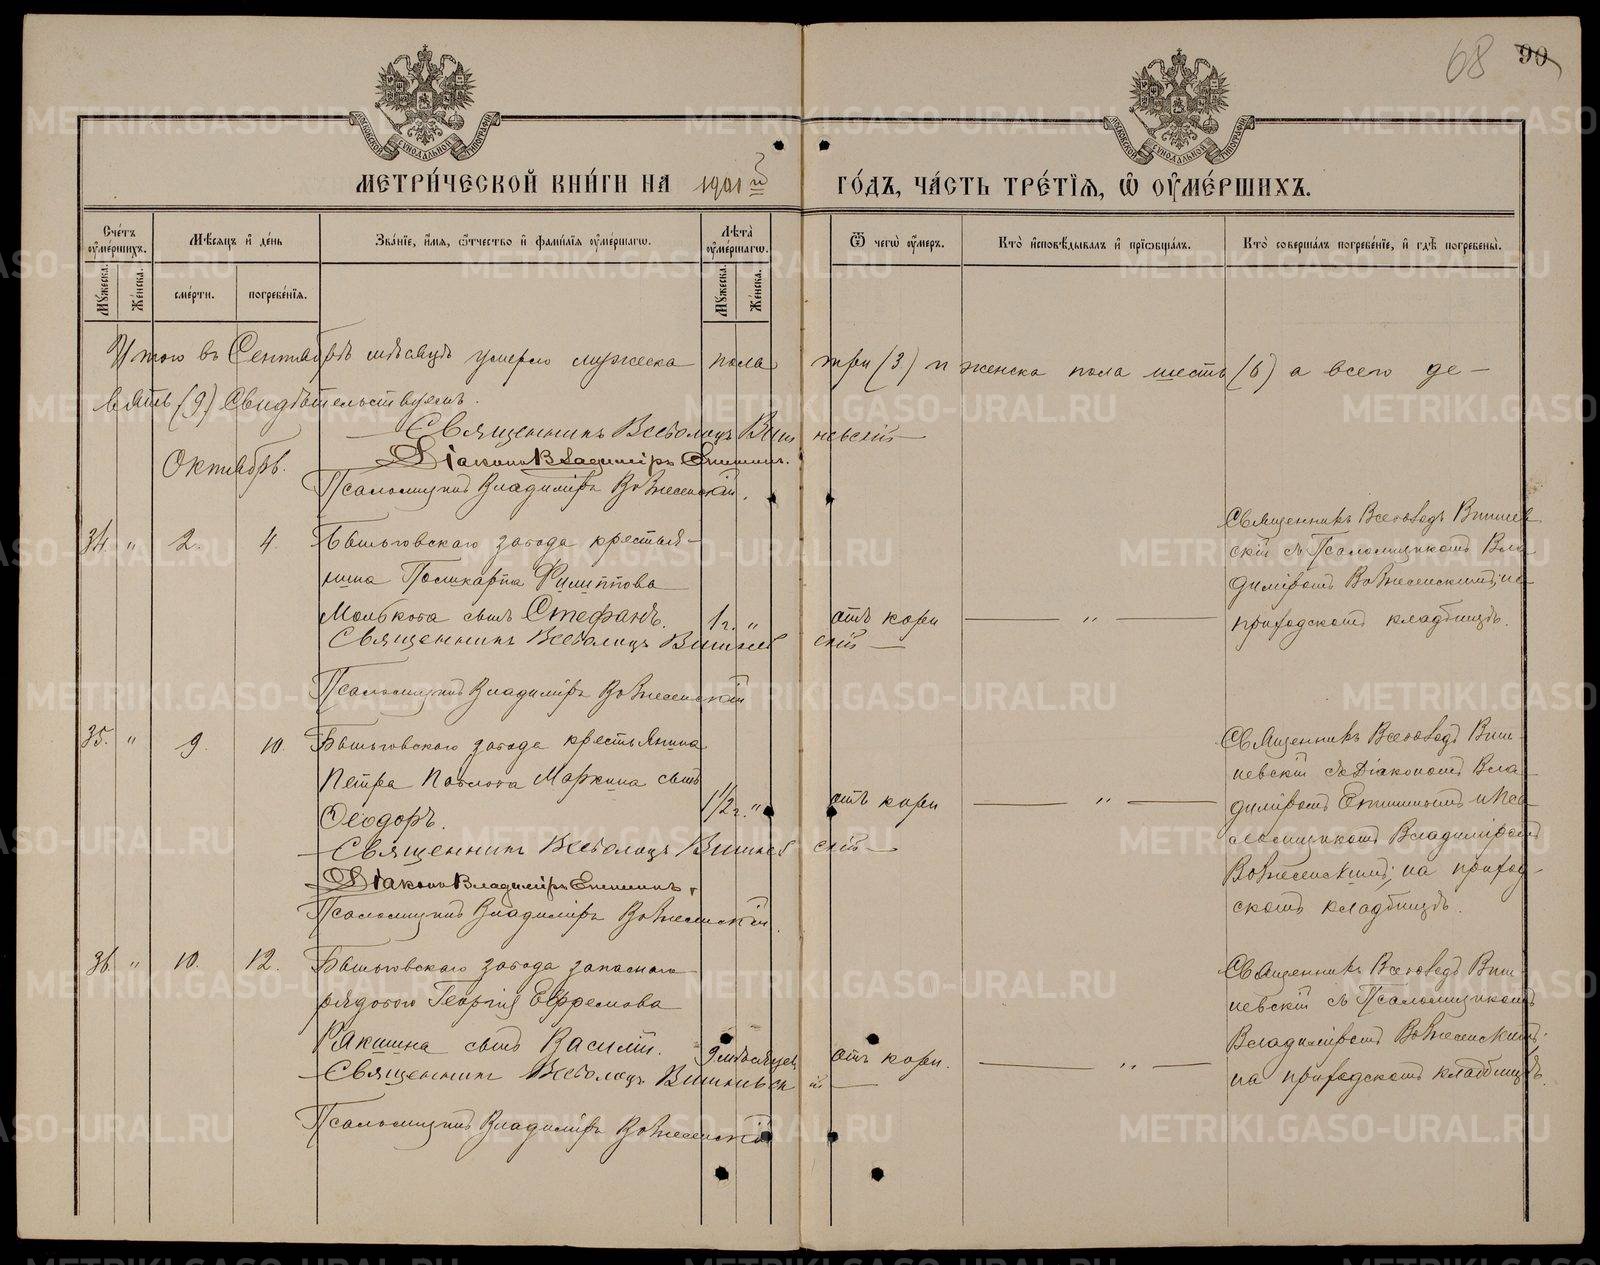 68 90
МОСКОВСКОЙ СѴНОДАЛЬНОЙ ТИПОГРАФІИ
МОСКОВСКОЙ СѴНОДАЛЬНОЙ ТИПОГРАФІИ
МЕТРИ́ЧЕСКОЙ КНИ́ГИ НА 1901й ГО́ДЪ, ЧА́СТЬ ТРЕ́ТІѦ, Ѡ҆ ОУ҆МЕ́РШИХЪ.
Сче́тъ оу҆ме́ршихъ.
Мѣ́сѧцъ и҆ де́нь
Зва́нїе, и҆́мѧ, ѻ҆́тчество и҆ фами́лїѧ оу҆ме́ршагѡ.
Лѣ́та оу҆ме́ршагѡ.
Ѿ чегѡ̀ оу҆́меръ.
Кто̀ и҆сповѣ́дывалъ и҆ прїѡбща́лъ.
Кто̀ соверша́лъ погребе́нїе, и҆ гдѣ̀ погребены̀.
Мꙋ́жеска. Же́нска. сме́рти. погребе́нїѧ. Мꙋ́жеска. Же́нска.
Итого въ Сентябрѣ мѣсяцѣ умерло мужеска пола три (3) и женска пола шесть (6) а всего де-
вять (9) Свидѣтельствуемъ.
Священникъ Всеволодъ Вишневскій
Октябрь.
Діаконъ Владиміръ Епишинъ.
Псаломщикъ Владиміръ Вознесенскій.
34. " 2. 4.
Быньговскаго завода крестья-
нина Поликарпа Филиппова
Молькова сынъ Стефанъ. 1 г. " отъ кори "
Священникъ Всеволодъ Вишневскій
Псаломщикъ Владиміръ Вознесенскій
Священникъ Всеволодъ Вишнев
скій съ Псаломщикомъ Вла-
диміромъ Вознесенскимъ; на
приходскомъ кладбищѣ.
35. " 9. 10.
Быньговскаго завода крестьянина
Петра Павлова Маркина сынъ
Ѳеодоръ. 1 1/2 г. " отъ кори "
Священникъ Всеволодъ Вишневскій
Діаконъ Владиміръ Епишинъ.
Псаломщикъ Владиміръ Вознесенскій.
Священникъ Всеволодъ Виш-
невскій съ Діакономъ Вла-
диміромъ Епишинымъ и Пса-
ломщикомъ Владиміромъ
Вознесенскимъ; на приход-
скомъ кладбищѣ.
36. " 10. 12.
Быньговскаго завода запаснаго
рядового Георгія Ефремова
Рякшина сынъ Василій. 9 мѣсяцев отъ кори. "
Священникъ Всеволодъ Вишневскій
Псаломщикъ Владиміръ Вознесенскій
Священникъ Всеволодъ Виш-
невскій съ Псаломщикомъ
Владиміромъ Вознесенскимъ;
на приходскомъ кладбищѣ.
METRIKI.GASO-URAL.RU